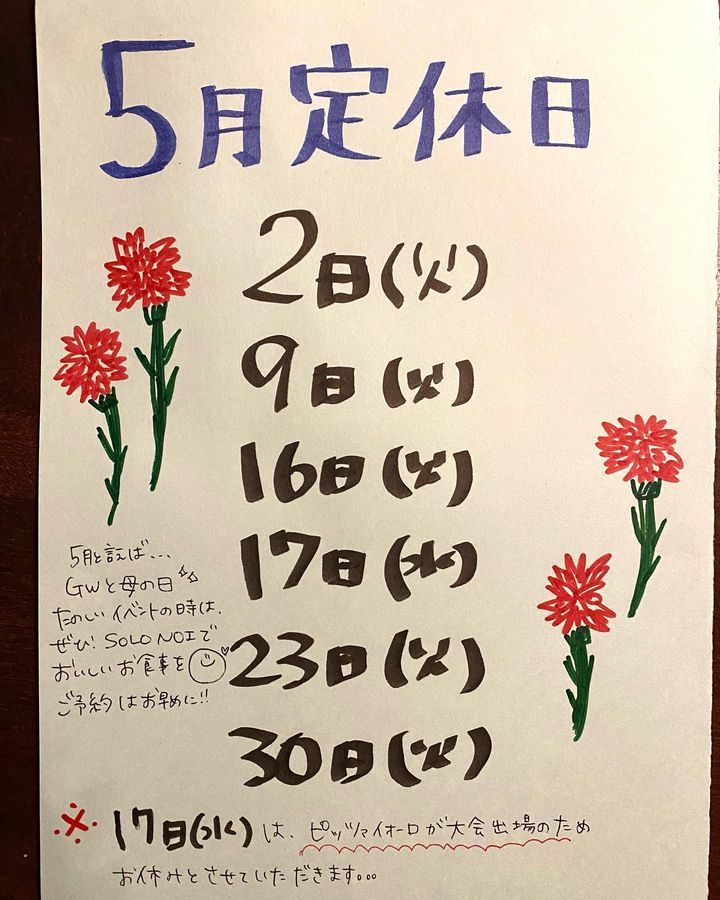 5月定休日
2日(火)
9日(火)
16日(火)
17日(水)
23日(火)
30日(火)
5月と言えば...
GWと母の日
たのしいイベントの時は、
ぜひ! SOLO NOIで
おいしいお食事を
ご予約はお早めに!!
※ 17日(水)は、ピッツァイオーロが大会出場のため
お休みとさせていただきます...